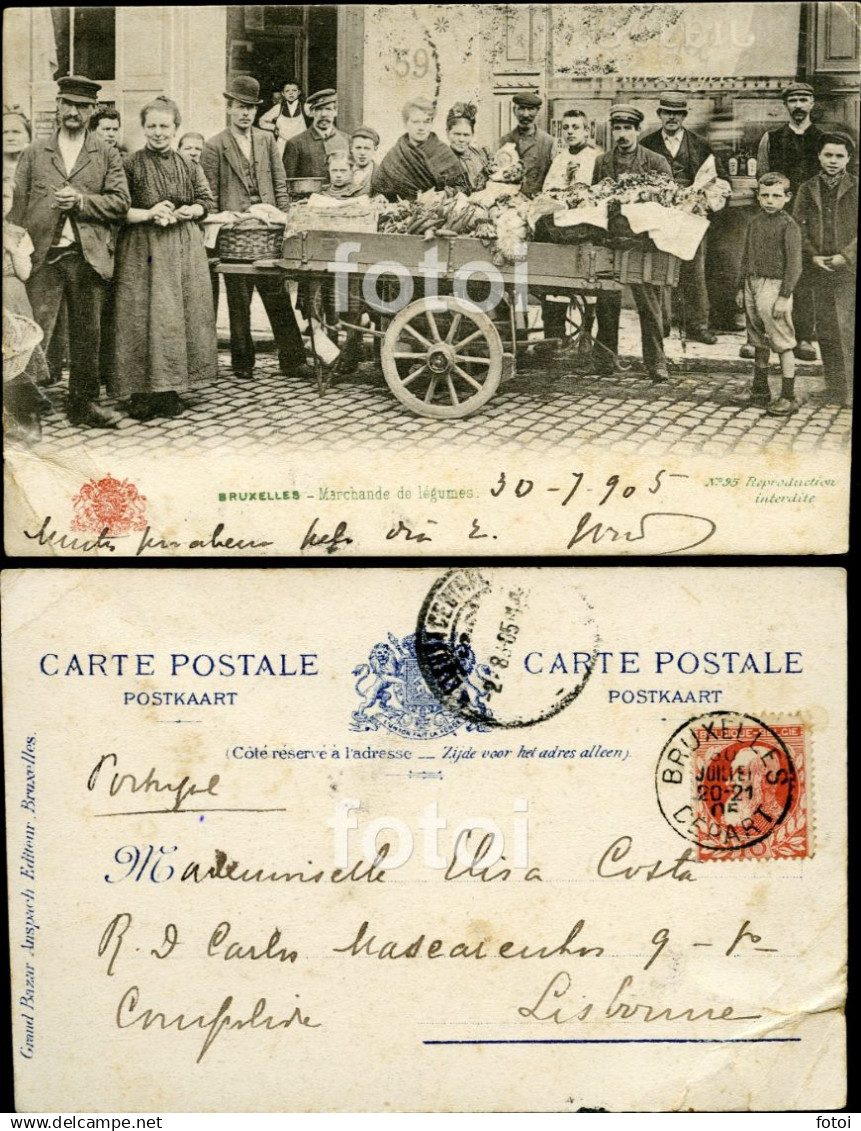 59
fotoi
BRUXELLES - Marchande de légumes. 30-7-905 Nº 95 Reproduction
interdite
Muitos parabens pelo dia 2.
CARTE POSTALE CARTE POSTALE
POSTKAART POSTKAART
L'UNION FAIT LA FORCE
(Côté réservé à l'adresse __ Zijde voor het adres alleen).
CENTRAL
2-8 05
BRUXELLES
30
JUILLET
20-21
05
DEPART
10
Portugal
fotoi
Mademoiselle Elisa Costa
R. D Carlos Mascarenhas 9 - 1º
Campolide Lisbonne
Grand Bazar Anspach Editeur, Bruxelles.
Delcampe.net
fotoi